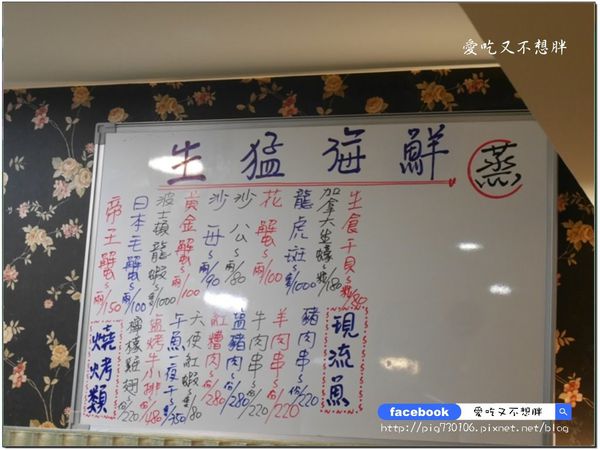 愛吃又不想胖
生猛海鮮
蒸
生食干貝~顆/80
加拿大生蠔~顆/180
龍虎斑~隻/1000
花蟹~兩/100
沙公~兩/80
沙母~兩/90
黃金蟹~兩/100
波士頓龍蝦~隻/1000
日本毛蟹~兩/100
帝王蟹~兩/150
現流魚
豬肉串~份/220
羊肉串~份/220
牛肉串~份/220
鹽豬肉~份/280
紅糟肉~份/280
天使紅蝦~隻/80
午魚一夜干~隻/350
鹽烤牛小排~份/480
檸檬雞翅~份/220
燒烤類
facebook 愛吃又不想胖
http://pig730106.pixnet.net/blog